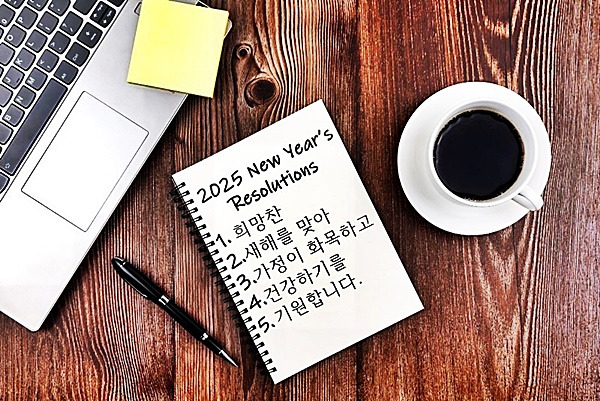 2025 New Year's
Resolutions
1. 희망찬
2.새해를 맞아
3.가정이 화목하고
4.건강하기를
5.기원합니다.